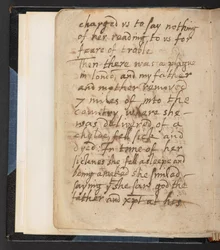 charged vs to say nothing
of her reading to vs for
feare of troble
Then there was a plague
in londō, and my father
and mother removed
7 miles of into the
country, where she
was deliuered of a
childe, fell sick and
dyed. In time of her
sicknes she fell asleepe and
being awaked she smiled
saying yt she saw god the
father and xpt at his